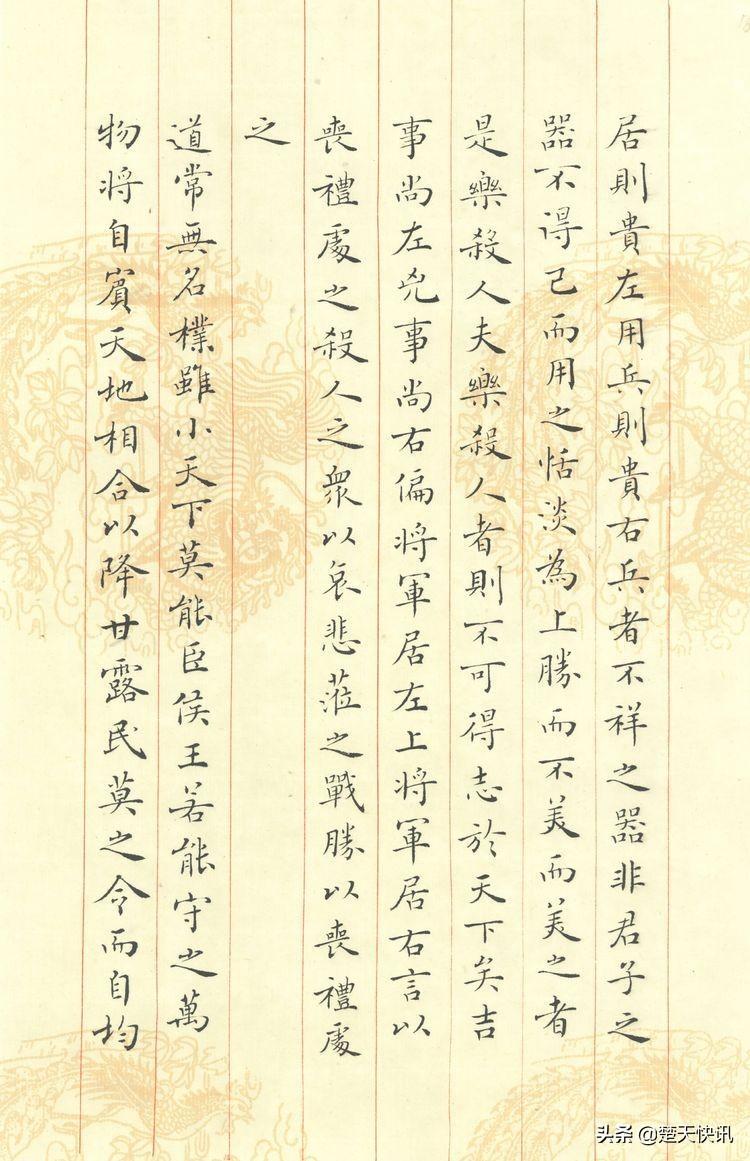 居則貴左用兵則貴右兵者不祥之器非君子之
器不得已而用之恬淡為上勝而不美而美之者
是樂殺人夫樂殺人者則不可得志於天下矣吉
事尚左兇事尚右偏將軍居左上將軍居右言以
喪禮處之殺人之衆以哀悲蒞之戰勝以喪禮處
之
道常無名樸雖小天下莫能臣侯王若能守之萬
物將自賓天地相合以降甘露民莫之令而自均
头条 @楚天快讯